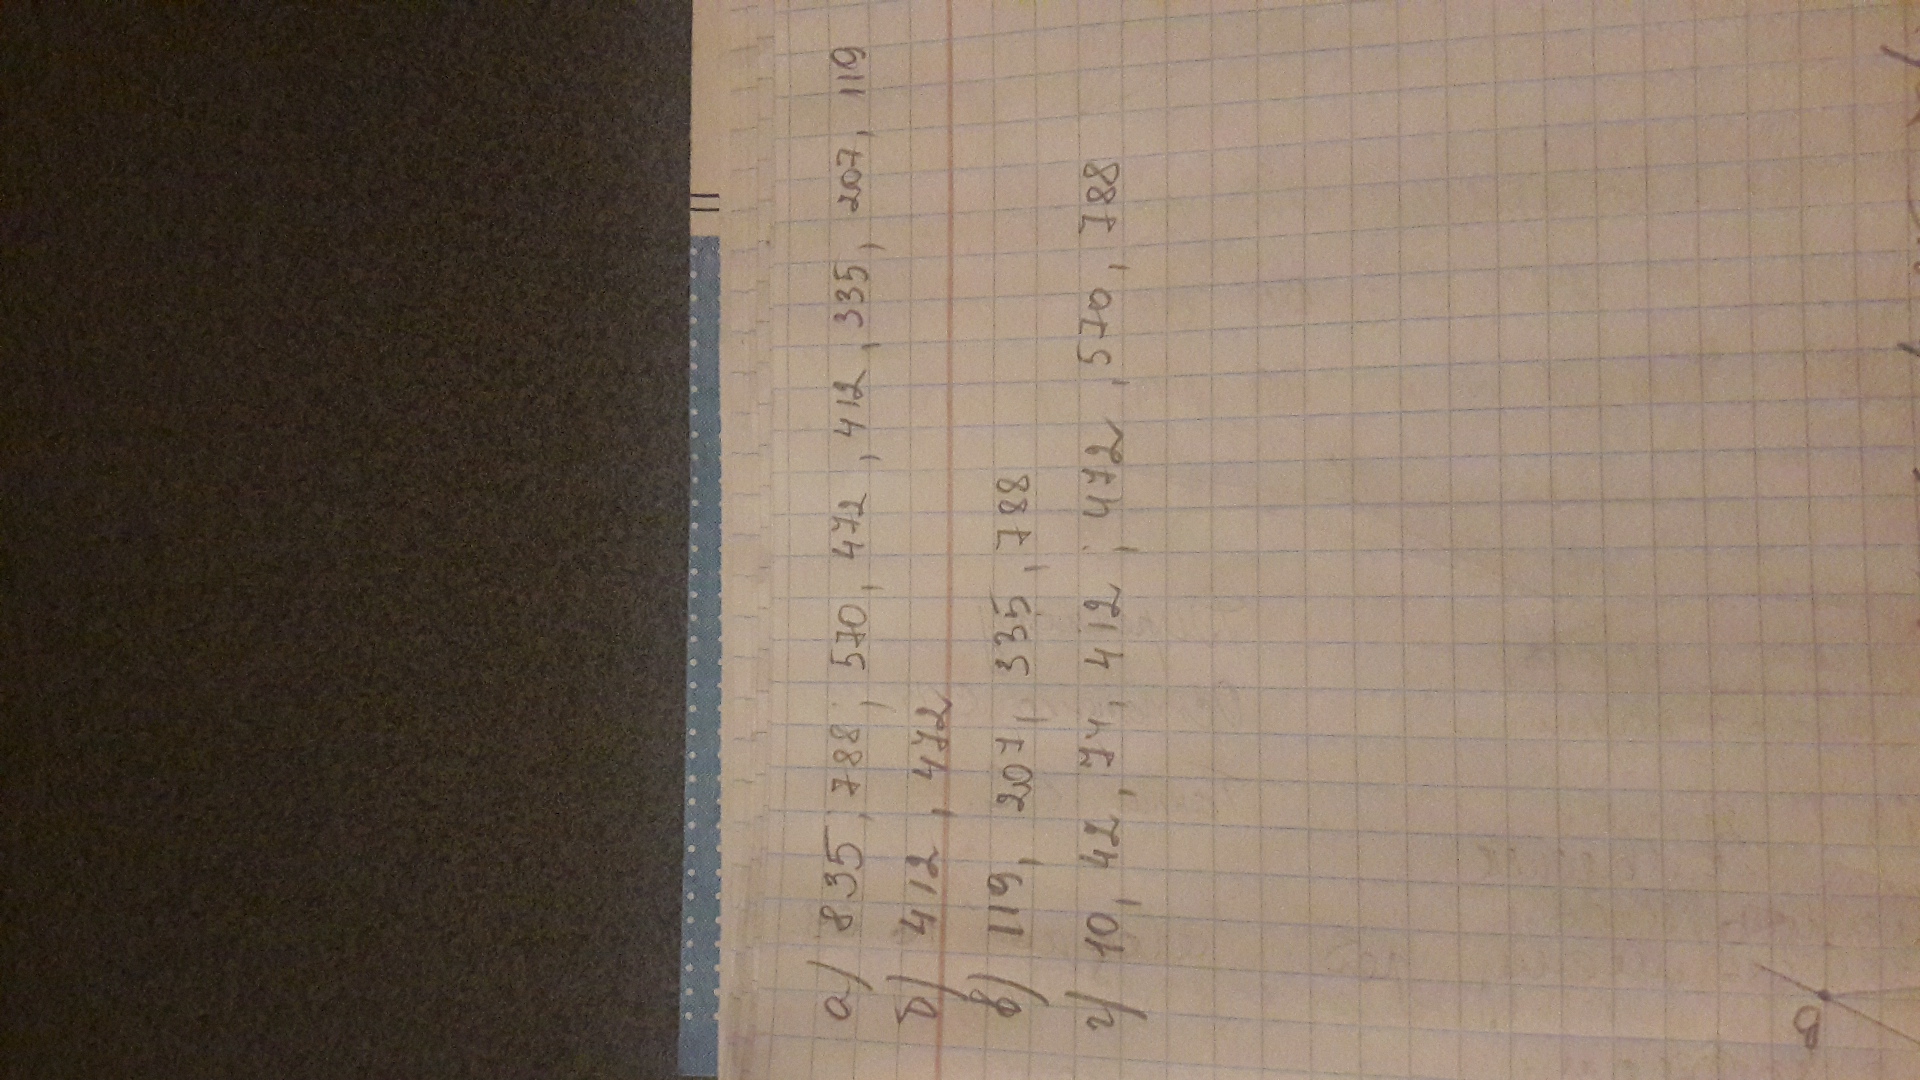 а) 835, 788, 570, 472, 412, 335, 207, 119
б) 412, 472
в) 119, 207, 335, 788
г) 10, 42, 74, 412, 472, 570, 788
В